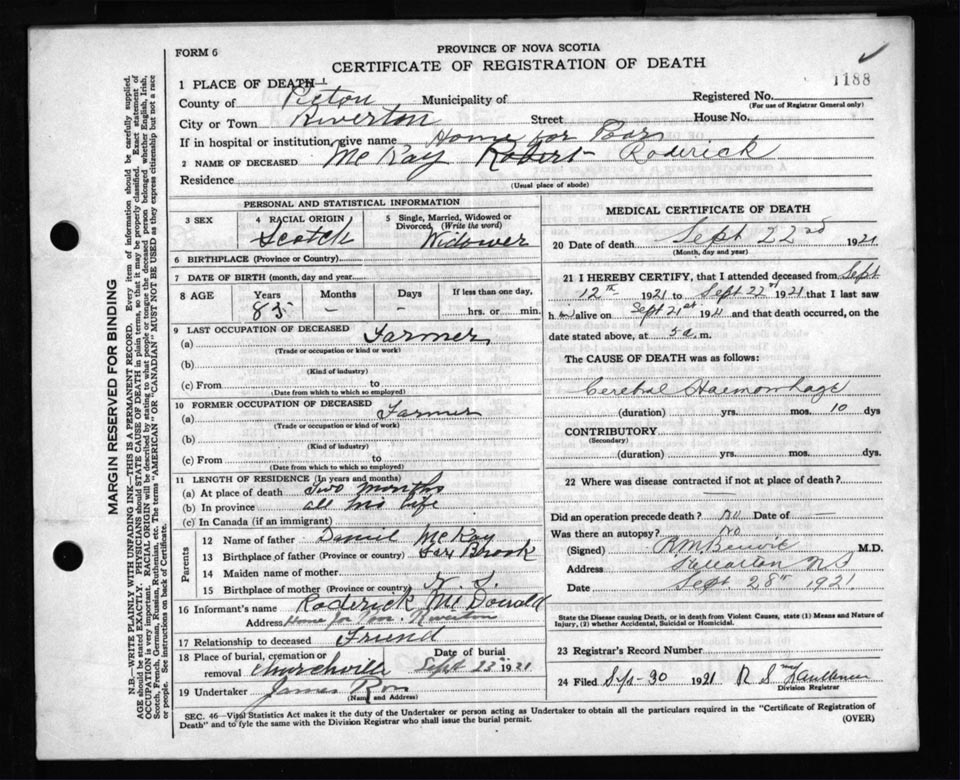 FORM 6
PROVINCE OF NOVA SCOTIA
CERTIFICATE OF REGISTRATION OF DEATH
1188
1 PLACE OF DEATH—
County of Picton Municipality of
Registered No.
(For use of Registrar General only)
City or Town Riverton Street House No.
If in hospital or institution, give name Home for Poor
2 NAME OF DECEASED McKay Robert Roderick
Residence
(Usual place of abode)
PERSONAL AND STATISTICAL INFORMATION
3 SEX
4 RACIAL ORIGIN
Scotch
5 Single, Married, Widowed or
Divorced, (Write the word)
Widower
6 BIRTHPLACE (Province or Country)
7 DATE OF BIRTH (month, day and year)
8 AGE Years Months Days If less than one day,
85 – – hrs. or min.
9 LAST OCCUPATION OF DECEASED
(a) Farmer
(Trade or occupation or kind of work)
(b)
(Kind of industry)
(c) From to
(Date from which to which so employed)
10 FORMER OCCUPATION OF DECEASED
(a) Farmer
(Trade or occupation or kind of work)
(b)
(Kind of industry)
(c) From to
(Date from which to which so employed)
11 LENGTH OF RESIDENCE (In years and months)
(a) At place of death two months
(b) In province all his life
(c) In Canada (if an immigrant)
Parents
12 Name of father Daniel McKay
13 Birthplace of father (Province or country) Brook
14 Maiden name of mother
15 Birthplace of mother (Province or country) N. S.
16 Informant's name Roderick McDonald
Address Home for Poor Riverton
17 Relationship to deceased Friend
18 Place of burial, cremation or
removal Churchville
Date of burial
Sept 22nd 1921
19 Undertaker James
(Name and Address)
MEDICAL CERTIFICATE OF DEATH
20 Date of death Sept 22nd 1921
(Month, day and year)
21 I HEREBY CERTIFY, that I attended deceased from Sept
12th 1921 to Sept 22nd 1921 that I last saw
him alive on Sept 21st 1921 and that death occurred, on the
date stated above, at 5 a. m.
The CAUSE OF DEATH was as follows:
Cerebral Haemorrhage
(duration) yrs. mos. 10 dys
CONTRIBUTORY
(Secondary)
(duration) yrs. mos. dys.
22 Where was disease contracted if not at place of death?
Did an operation precede death? no Date of —
Was there an autopsy? No
(Signed) M.D.
Address Stellarton N S
Date Sept 28th 1921
State the Disease causing Death, or in death from Violent Causes, state (1) Means and Nature of
Injury, (2) whether Accidental, Suicidal or Homicidal.
23 Registrar's Record Number
24 Filed Sept 30 1921 R S
Division Registrar
SEC. 46—Vital Statistics Act makes it the duty of the Undertaker or person acting as Undertaker to obtain all the particulars required in the "Certificate of Registration of
Death" and to fyle the same with the Division Registrar who shall issue the burial permit.
(OVER)
MARGIN RESERVED FOR BINDING
N.B.—WRITE PLAINLY WITH UNFADING INK—THIS IS A PERMANENT RECORD. Every item of information should be carefully supplied.
AGE should be stated EXACTLY. PHYSICIANS should STATE CAUSE OF DEATH in plain terms, so that it may be properly classified. Exact statement of
OCCUPATION is very important. RACIAL ORIGIN will be described by stating to what people or tongue the deceased person belonged whether English, Irish,
Scotch, French, German, Russian, Ruthenian, etc. The terms "AMERICAN" OR "CANADIAN" MUST NOT BE USED as they express citizenship but not a race
or people. See instructions on back of Certificate.